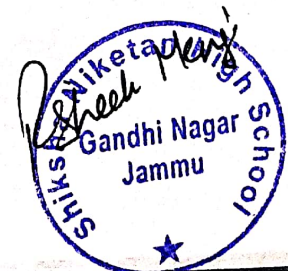 Shiksha Niketan High School
Gandhi Nagar
Jammu